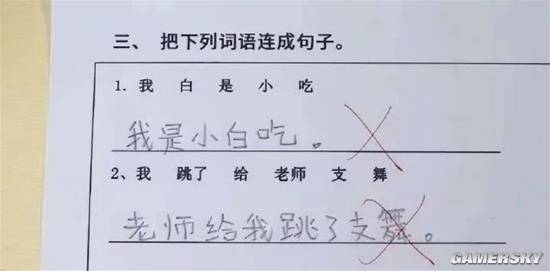 三、把下列词语连成句子。
1. 我 白 是 小 吃
我是小白吃。
2、我 跳了 给 老师 支 舞
老师给我跳了支舞。
GAMERSKY